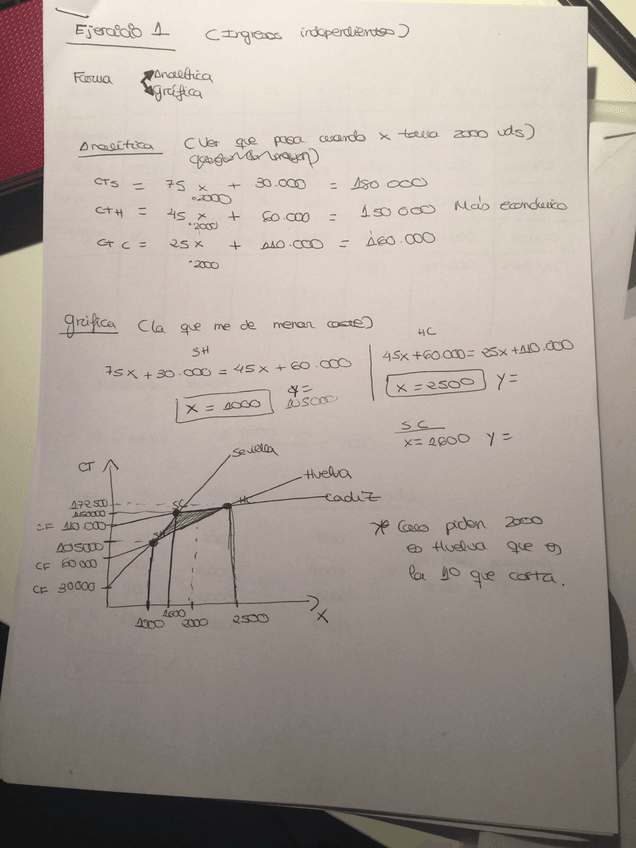 Ejercicio 1 (Ingresos independientes)
Forma
Analítica
gráfica
Analítica (Ver que pasa cuando x toma 2000 uds)
CTS = 75 x + 30.000 = 180 000
·2000
CTH = 45 x + 60.000 = 150 000 Más económico
·2000
CTC = 25x + 110.000 = 160.000
·2000
gráfica (la que me de menor coste)
SH
75x + 30.000 = 45x + 60.000
x = 1000 y = 105000
HC
45x + 60.000 = 25x + 110.000
x = 2500 y =
SC
x = 1600 y =
CT
Sevilla
Huelva
Cadiz
172500
150000
CF 110.000
105000
CF 60000
CF 30000
SC
HC
SH
1000
1600
2000
2500
X
* Como piden 2000
es Huelva que es
la 1ª que corta.